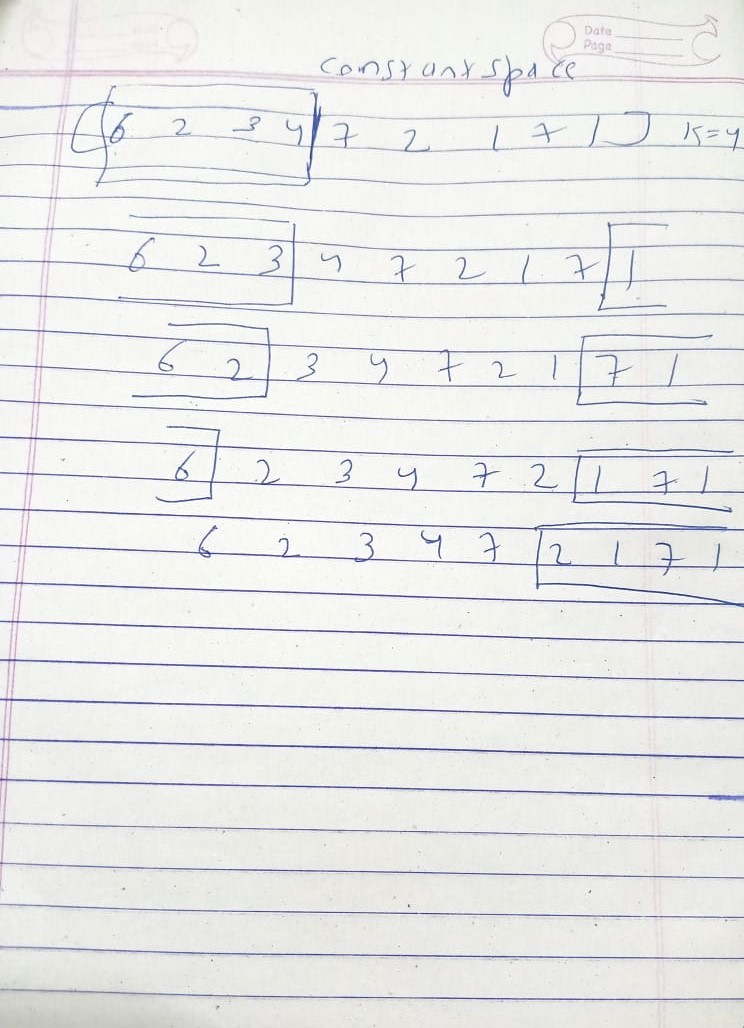 Date
Page
constant space
[6 2 3 4 7 2 1 7 1] K=4
6 2 3 4 7 2 1 7 1
6 2 3 4 7 2 1 7 1
6 2 3 4 7 2 1 7 1
6 2 3 4 7 2 1 7 1